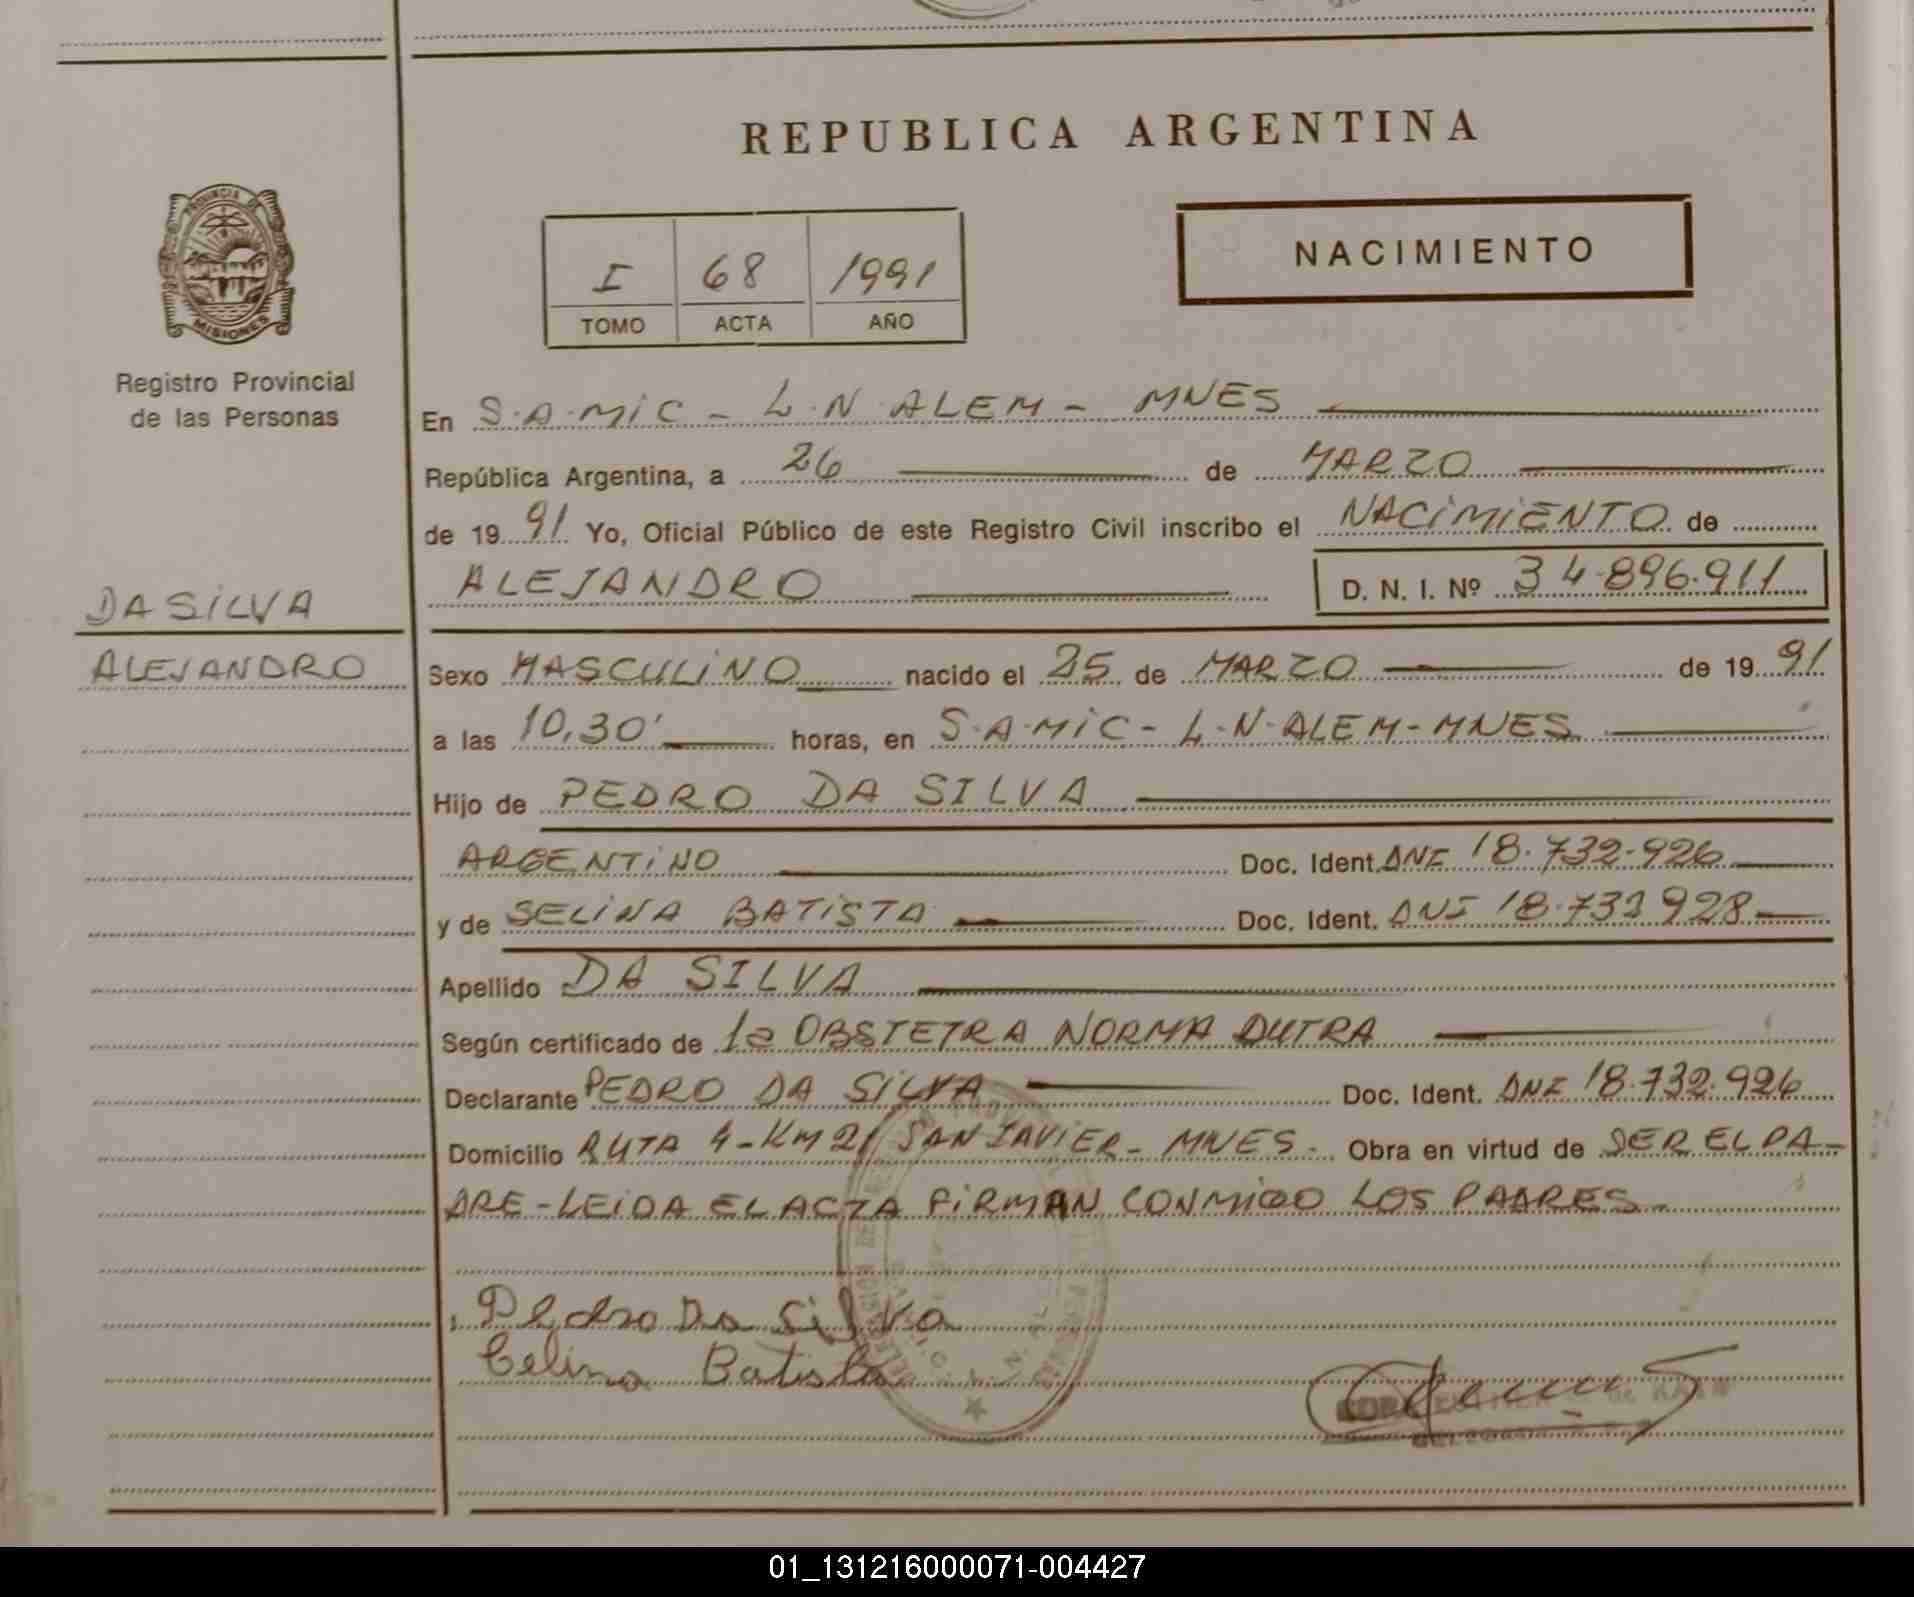 REPUBLICA ARGENTINA
PROVINCIA DE
MISIONES
Registro Provincial
de las Personas
I 68 1991
TOMO ACTA AÑO
NACIMIENTO
En S.A.MIC - L.N.ALEM - MNES
República Argentina, a 26 de MARZO
de 1991 Yo, Oficial Público de este Registro Civil inscribo el NACIMIENTO de
ALEJANDRO D. N. I. Nº 34.896.911
DA SILVA
ALEJANDRO
Sexo MASCULINO nacido el 25 de MARZO de 1991
a las 10,30' horas, en S.A.MIC - L.N.ALEM - MNES
Hijo de PEDRO DA SILVA
ARGENTINO Doc. Ident. DNI 18.732.926
y de SELINA BATISTA Doc. Ident. DNI 18.732 928
Apellido DA SILVA
Según certificado de la OBSTETRA NORMA DUTRA
Declarante PEDRO DA SILVA Doc. Ident. DNI 18.732.926
Domicilio RUTA 4 - KM 21 SAN JAVIER - MNES. Obra en virtud de SER EL PA-
DRE - LEIDA EL ACTA FIRMAN CONMIGO LOS PADRES.
Pedro Da Silva
Celina Batista
01_131216000071-004427